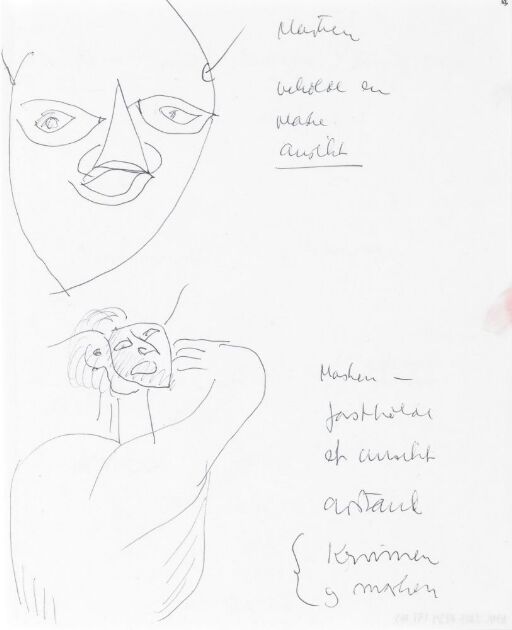 Masken
beholde en
maske
ansikt
Masken —
fastholde
et ansikt
avstand
Kvinnen
og masken